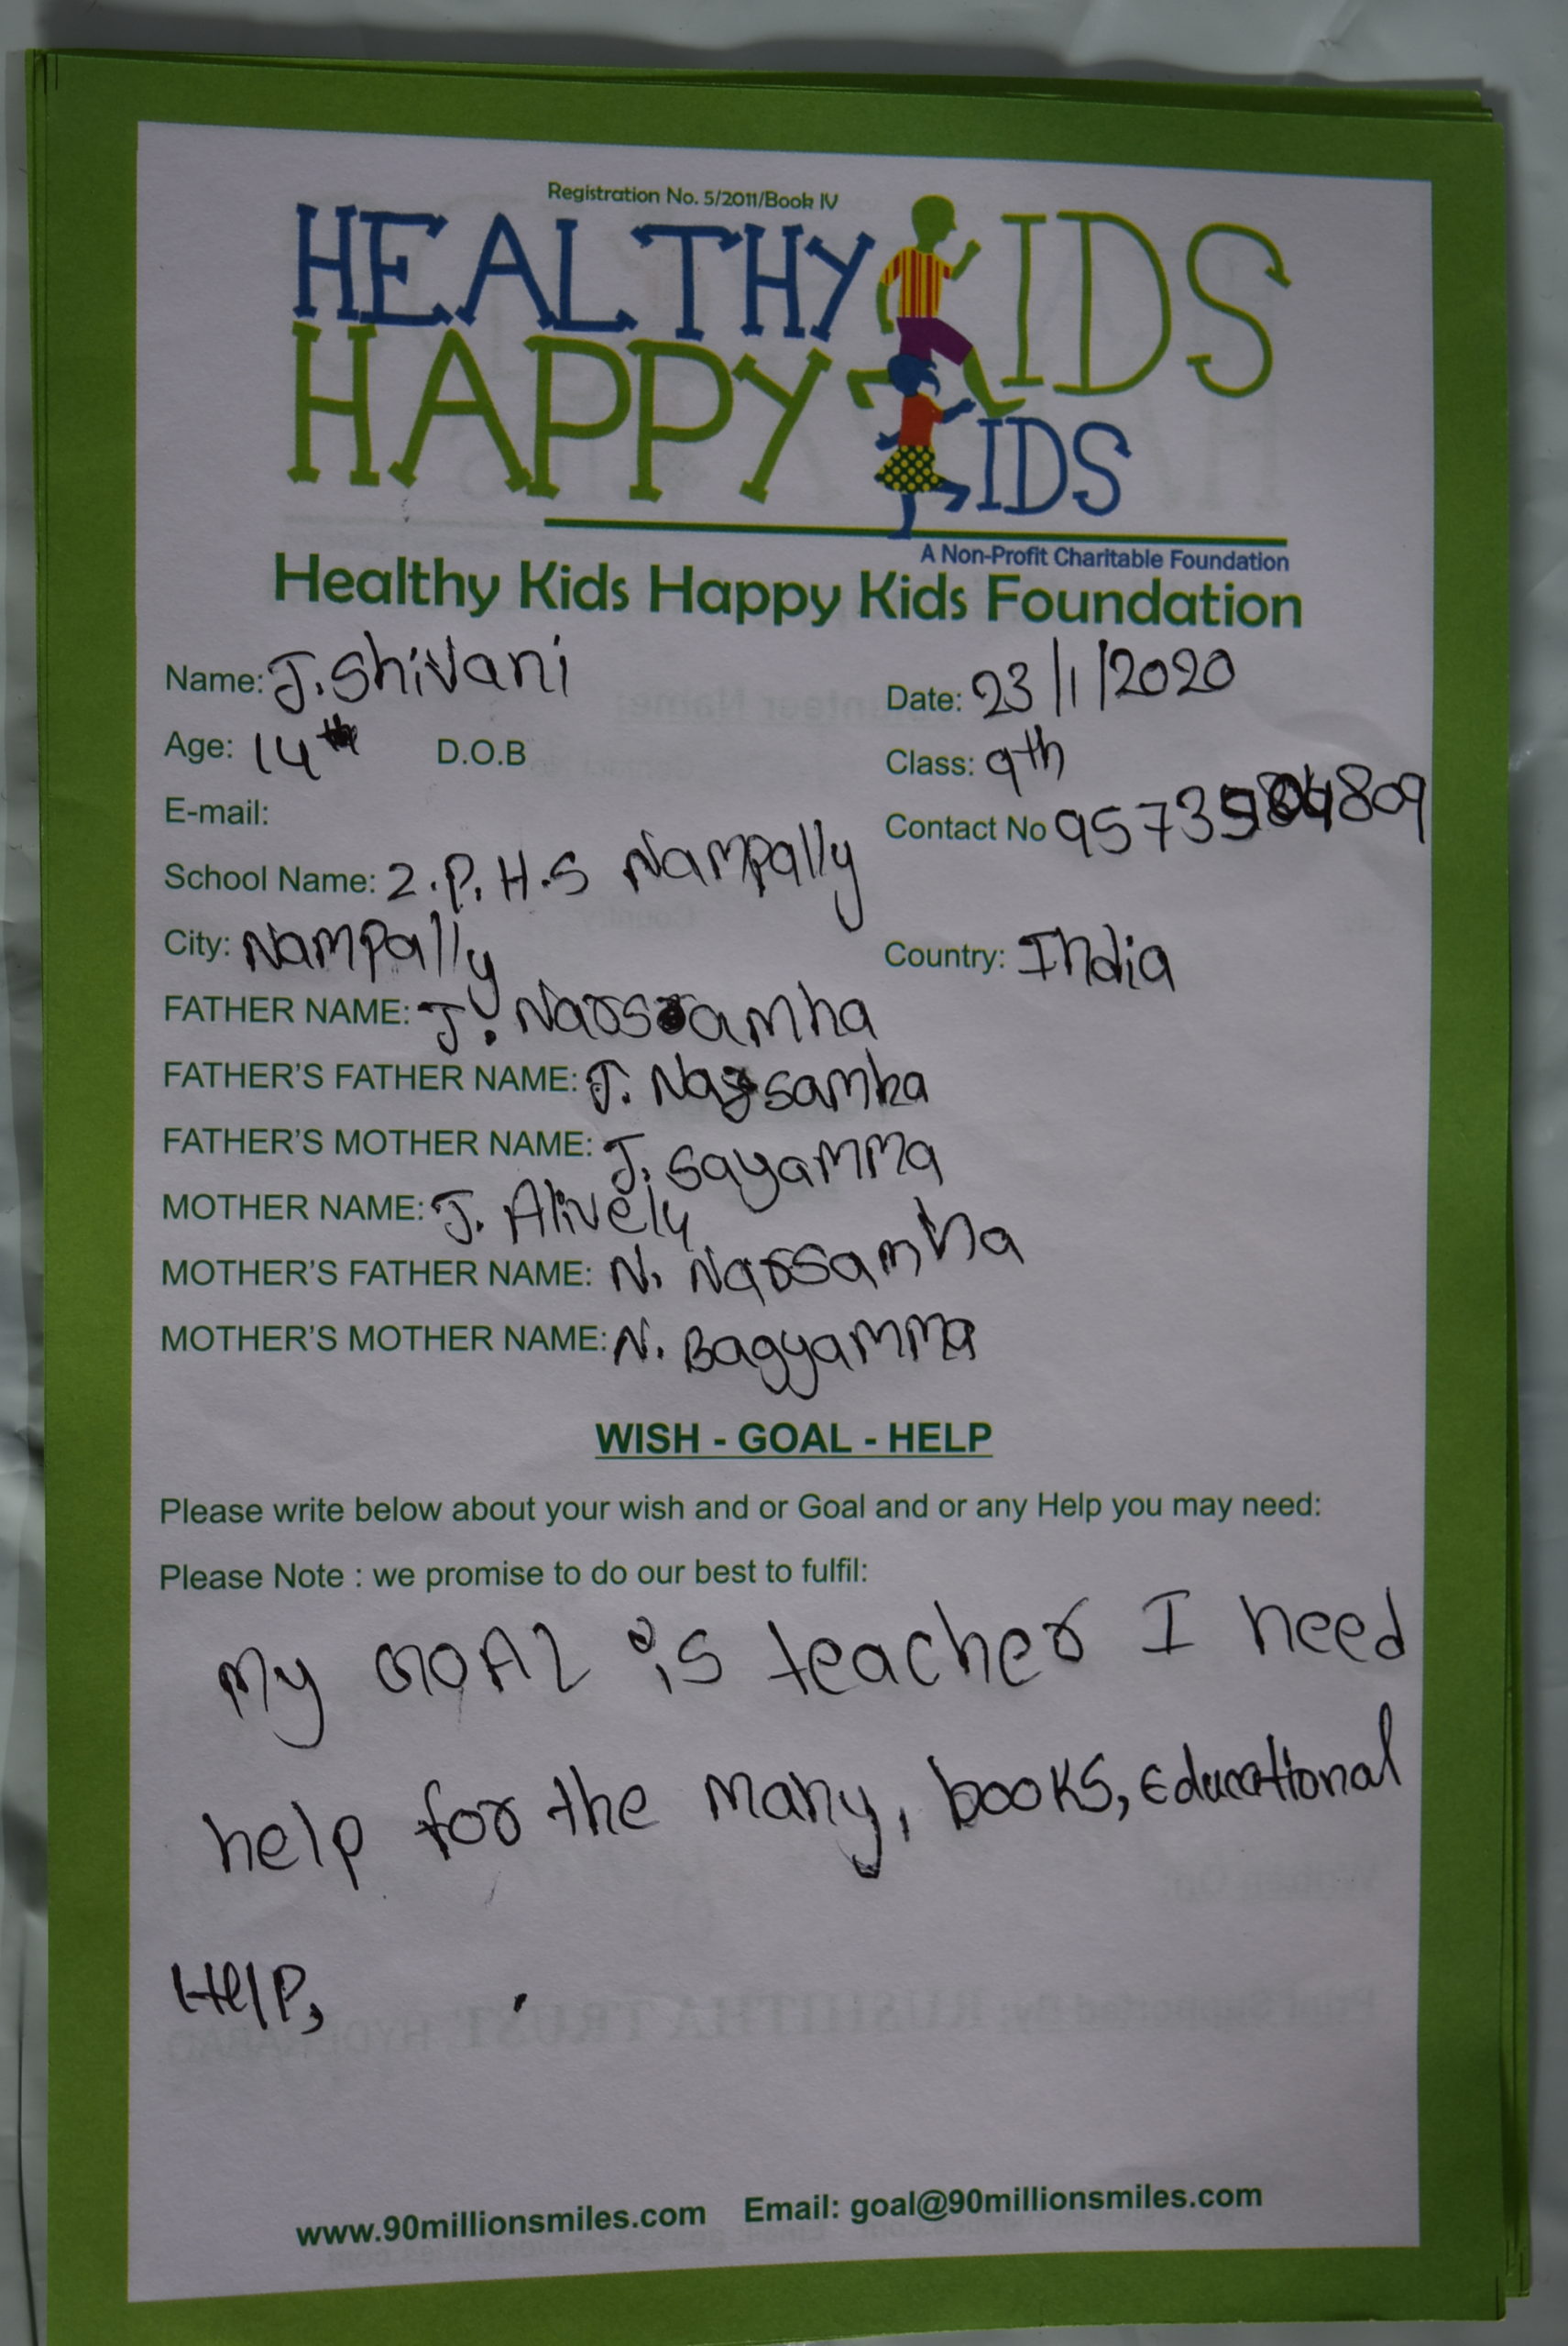 Registration No. 5/2011/Book IV
HEALTHY KIDS
HAPPY KIDS
A Non-Profit Charitable Foundation
Healthy Kids Happy Kids Foundation
Name: J. Shivani
Date: 23/1/2020
Age: 14th D.O.B
Class: 9th
E-mail:
Contact No
School Name: 2.P.H.S Nampally
City: Nampally
Country: India
FATHER NAME: J.
FATHER'S FATHER NAME: J. Narsamha
FATHER'S MOTHER NAME: J. Sayamma
MOTHER NAME: J. Alively
MOTHER'S FATHER NAME: N. Narssamha
MOTHER'S MOTHER NAME: N. Bagyamma
WISH - GOAL - HELP
Please write below about your wish and or Goal and or any Help you may need:
Please Note : we promise to do our best to fulfil:
My GOAL is teacher I need
help for the many, books, Educational
Help,
www.90millionsmiles.com Email: goal@90millionsmiles.com